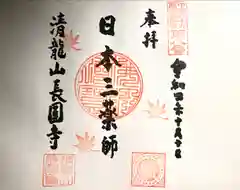 奉拝
令和四年十月十日
日本三薬師
清龍山長圓寺